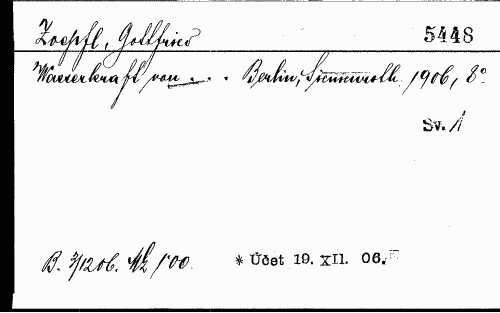 Zoepfl, Gottfried 5448
Wasserkraft von . . . Berlin, Siemenroth. 1906, 8°
Sv. A
B. 3/12 06. Mk 1'00 * Účet 19. XII. 06.